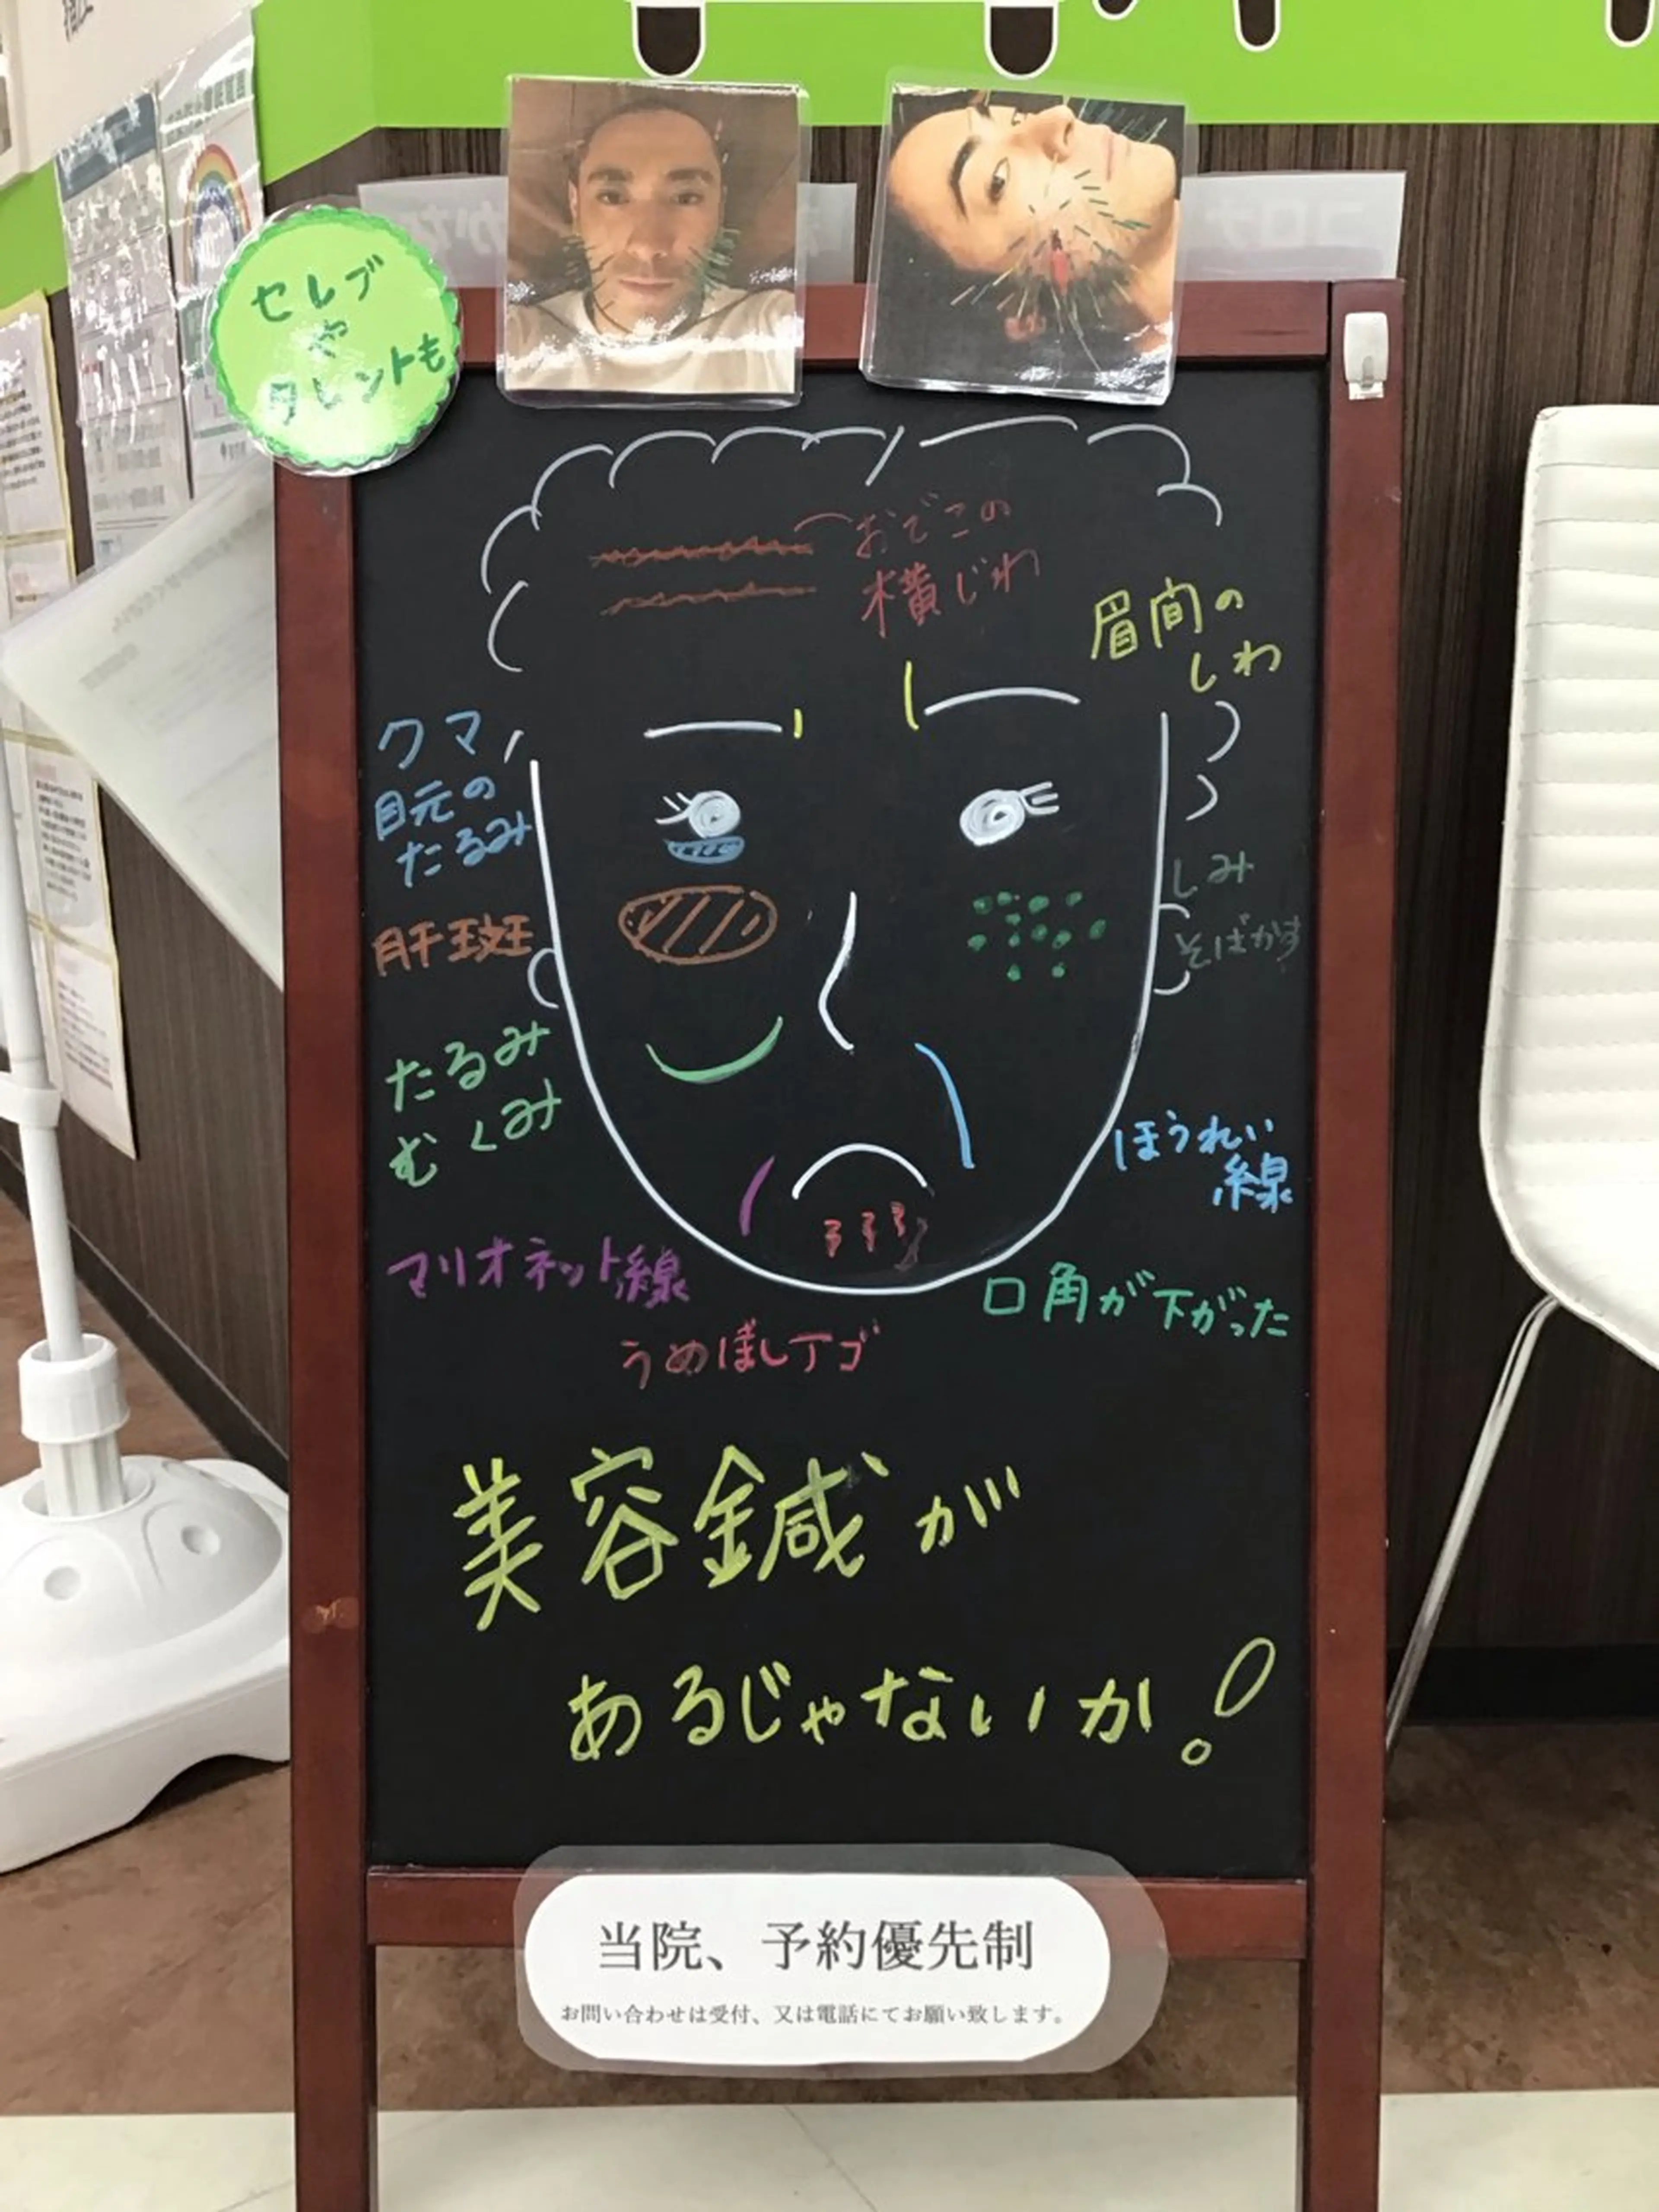 セレブ
や
タレントも
おでこの
横じわ
眉間の
しわ
クマ
目元の
たるみ
しみ
そばかす
肝斑
たるみ
むくみ
ほうれい
線
マリオネット線
口角が下がった
うめぼしアゴ
美容鍼が
あるじゃないか!
当院、予約優先制
お問い合わせは受付、又は電話にてお願い致します。